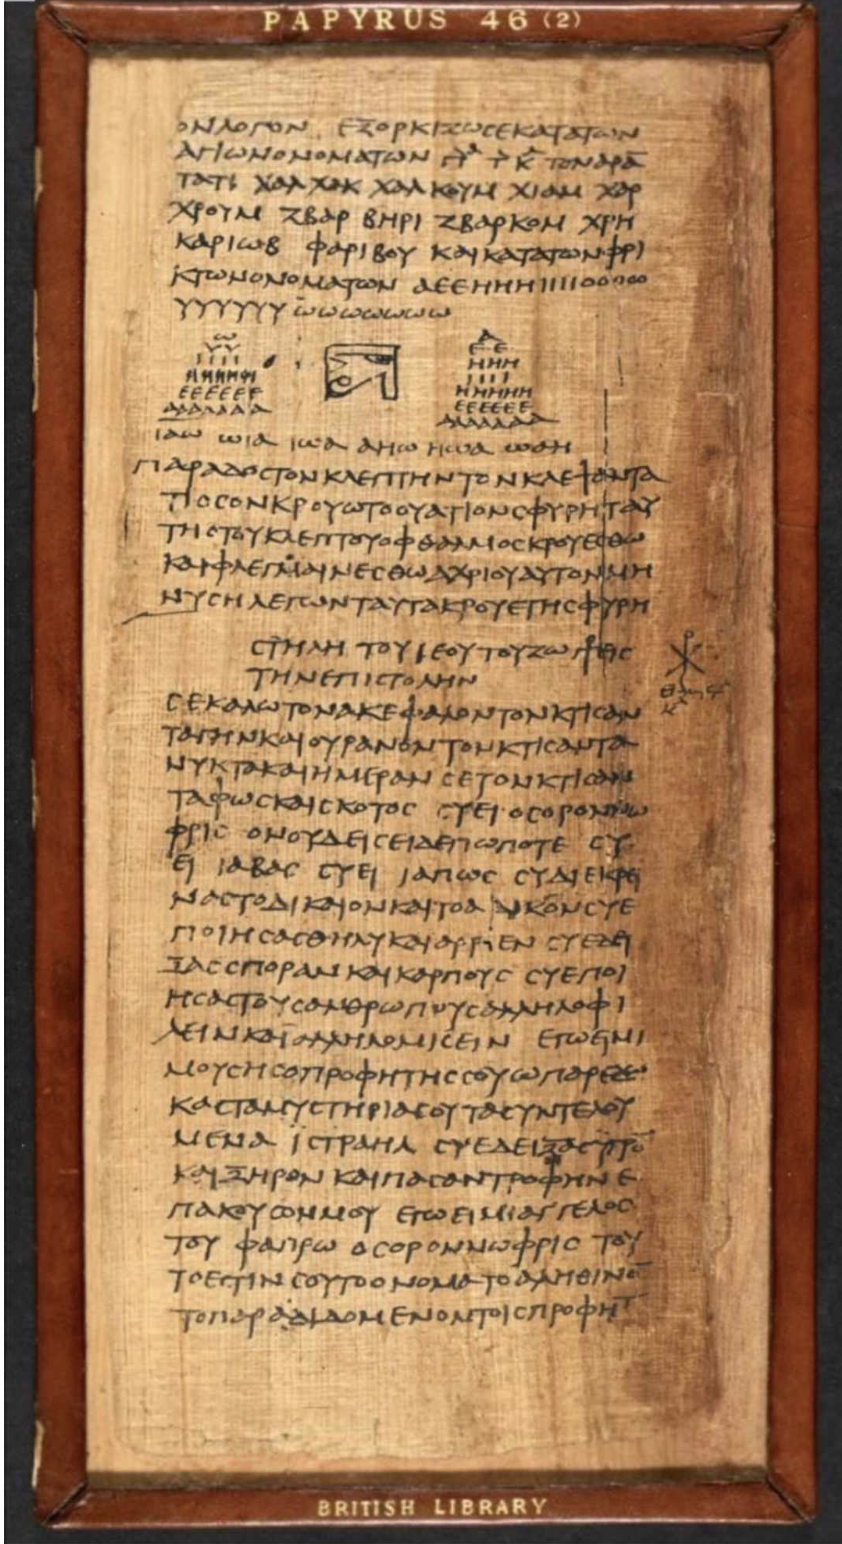 PAPYRUS 46 (2)
ον λογον εξορκιζω σε κατα των
αγιων ονοματων
χαλχακ χαλκουμ χιαμ χαρ
χρουμ ζβαρ βηρι ζβαρκομ χρη
καριωβ φαριβου και κατα των φρι
κτων ονοματων α εε ηηη ιιιι οοοοο
υυυυυυ ωωωωωωω
ω
υυ
ιιιι
εεεεεε
ααααααα
α
εε
ηηη
ιιιι
ηηηηη
εεεεεε
ααααααα
ιαω ωια ιωα αηω ηωα ωαη
παραδος τον κλεπτην τον κλεψαντα
τι οσον κρουω το ουατιον σφυρη ταυ
τη ο του κλεπτου οφθαλμος κρουεσθω
και φλεγμαινεσθω αχρι ου αυτον μη
νυση λεγων ταυτα κρουε τη σφυρη
στηλη του ιεου του ζωγρ εις
την επιστολην
σε καλω τον ακεφαλον τον κτισαν
τα γην και ουρανον τον κτισαντα
νυκτα και ημεραν σε τον κτισαν
τα φως και σκοτος συ ει οσοροννω
φρις ον ουδεις ειδε πωποτε συ
ει ιαβας συ ει ιαπως συ διεκρει
νας το δικαιον και το αδικον συ ε
ποιησας θηλυ και αρρεν συ εδει
ξας σποραν και καρπους συ εποι
ησας τους ανθρωπους αλληλοφι
λειν και αλληλομισειν εγω ειμι
μουσης ο προφητης σου ω παρεδω
κας τα μυστηρια σου τα συντελου
μενα ιστραηλ συ εδειξας υγρο
και ξηρον και πασαν τροφην ε
πακουσον μου εγω ειμι αγγελος
του φαπρω οσοροννωφρις του
το εστιν σου το ονομα το αληθινο
το παραδιδομενον τοις προφητ
BRITISH LIBRARY